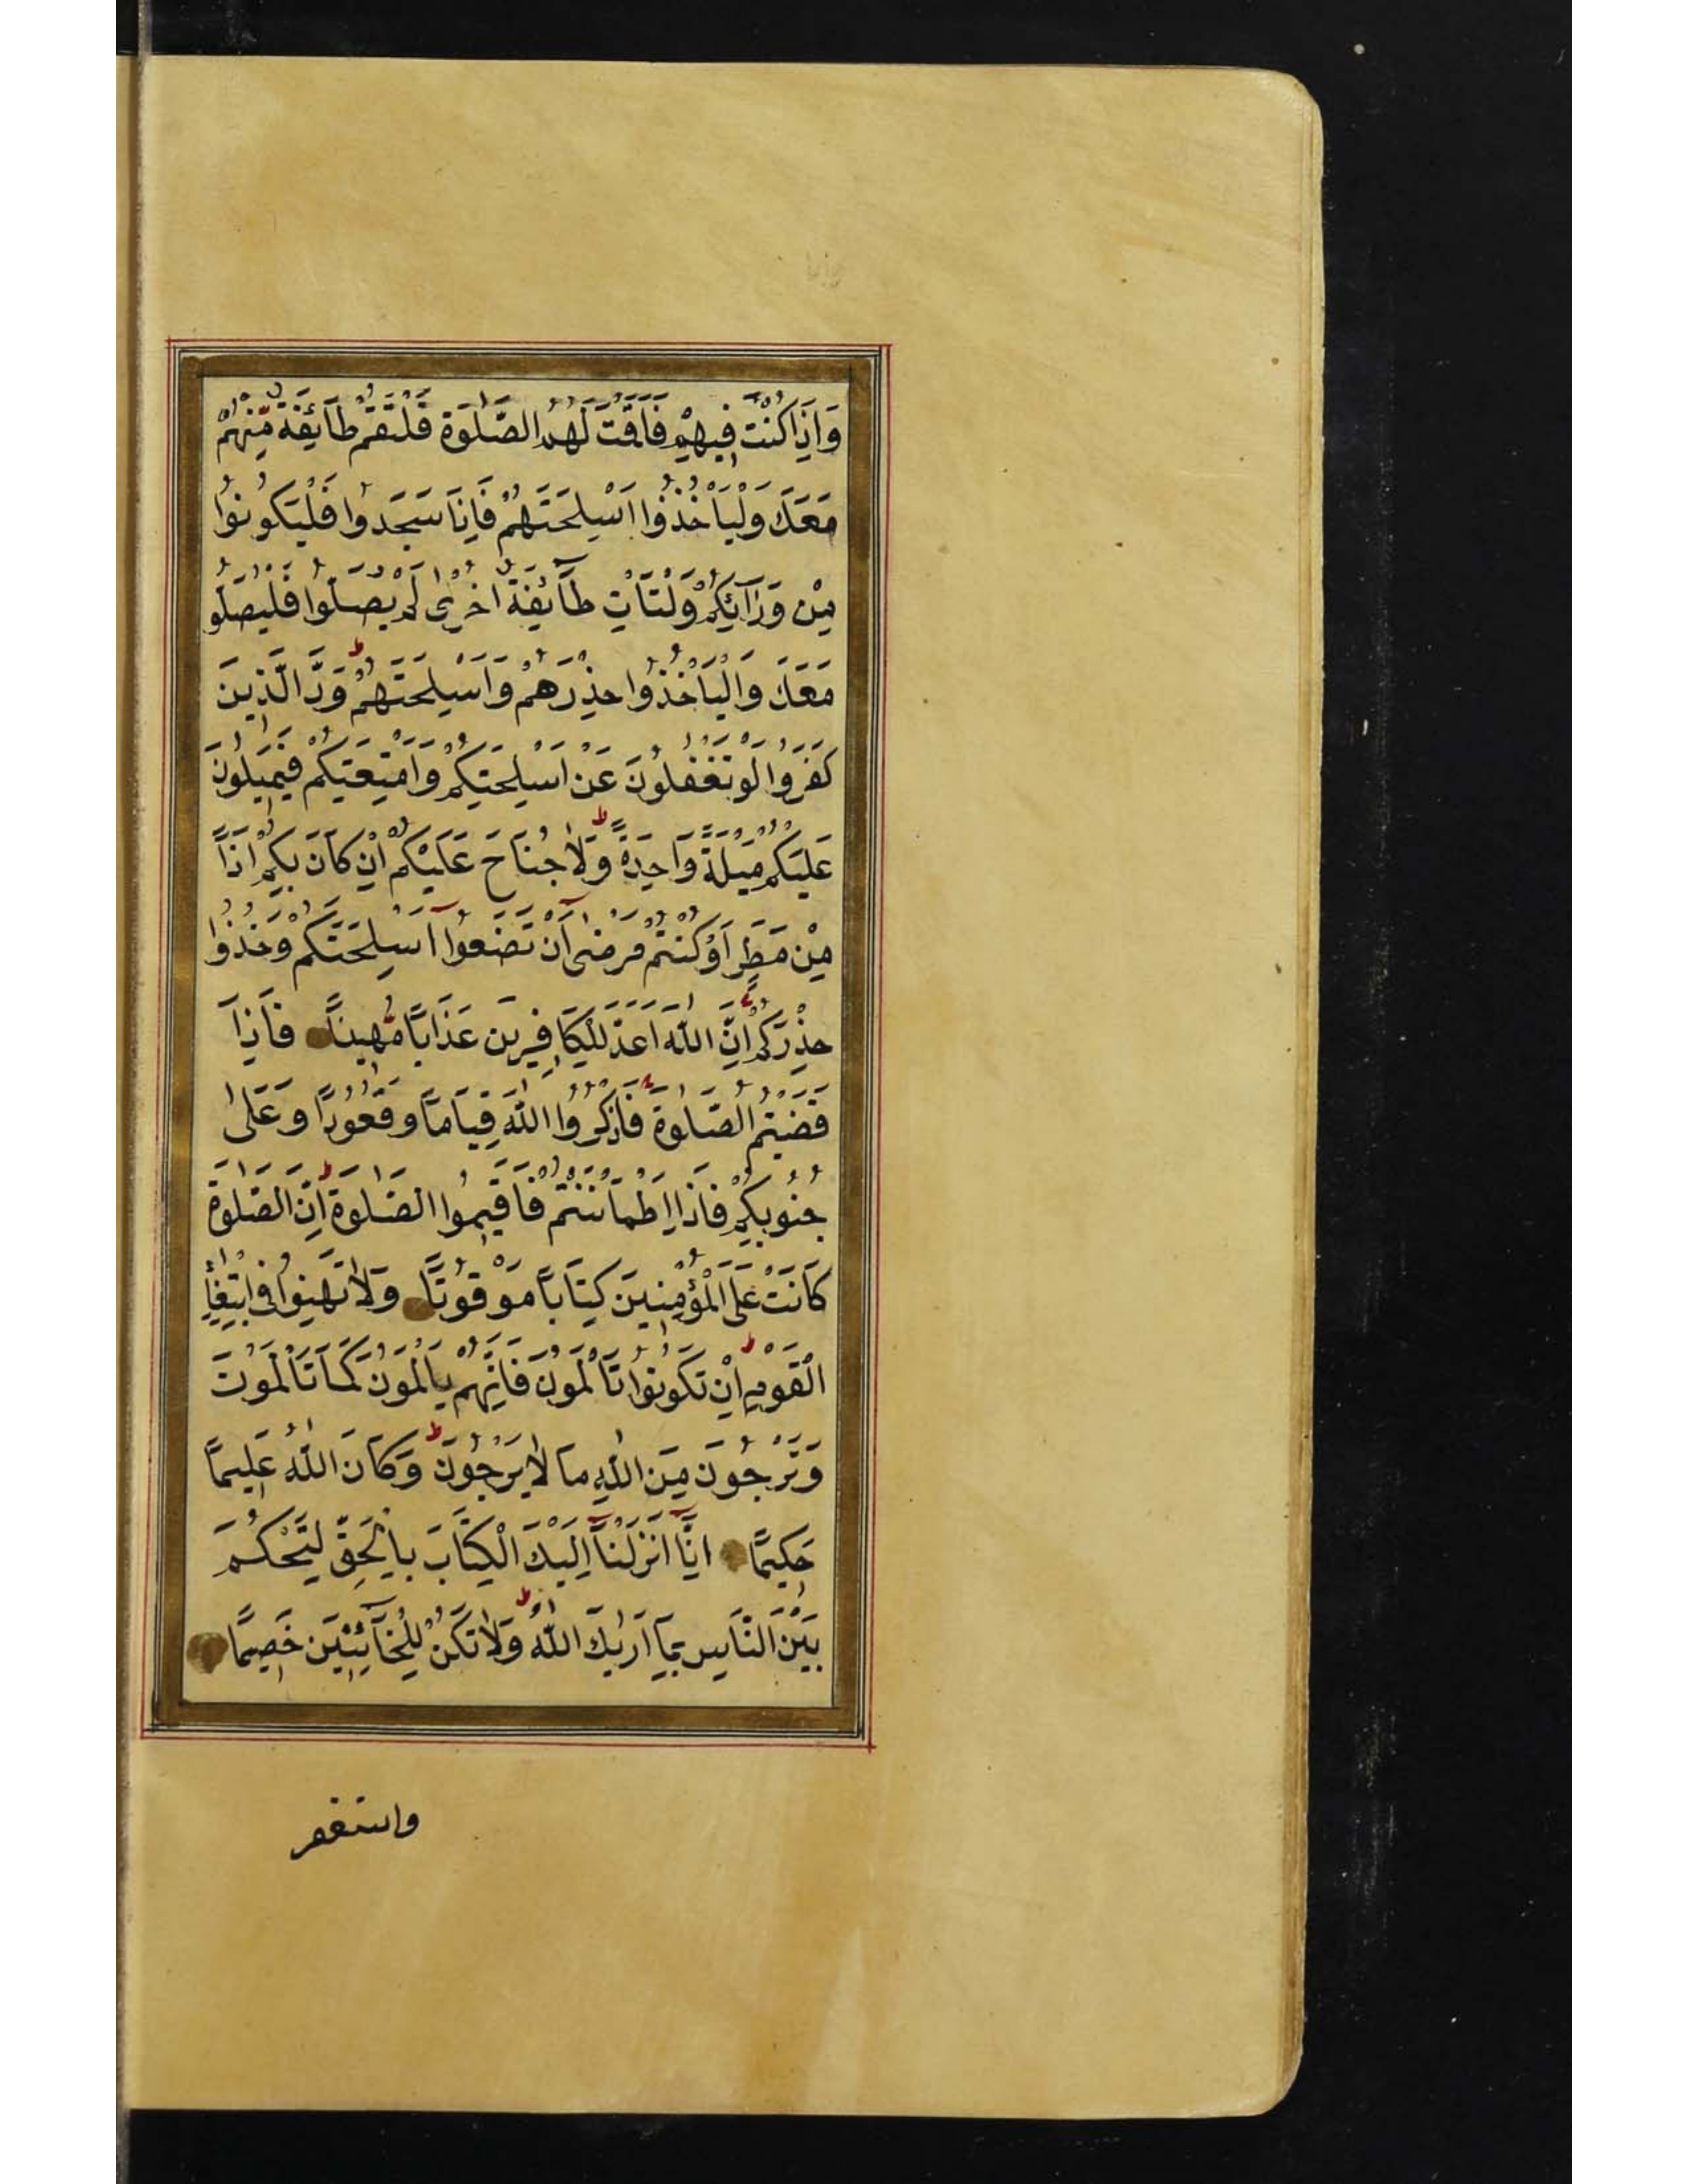 وَاِذَا كُنْتَ فِيهِمْ فَاَقَمْتَ لَهُمُ الصَّلٰوةَ فَلْتَقُمْ طَآئِفَةٌ مِّنْهُمْ
مَعَكَ وَلْيَاْخُذُوٓا اَسْلِحَتَهُمْ فَاِذَا سَجَدُوا فَلْيَكُونُوا
مِنْ وَرَآئِكُمْ وَلْتَاْتِ طَآئِفَةٌ اُخْرٰى لَمْ يُصَلُّوا فَلْيُصَلُّو
مَعَكَ وَالْيَاْخُذُوا حِذْرَهُمْ وَاَسْلِحَتَهُمْ وَدَّ الَّذِينَ
كَفَرُوا لَوْ تَغْفُلُونَ عَنْ اَسْلِحَتِكُمْ وَاَمْتِعَتِكُمْ فَيَمِيلُونَ
عَلَيْكُمْ مَيْلَةً وَاحِدَةً وَلَا جُنَاحَ عَلَيْكُمْ اِنْ كَانَ بِكُمْ اَذًا
مِنْ مَطَرٍ اَوْ كُنْتُمْ مَرْضٰى اَنْ تَضَعُوٓا اَسْلِحَتَكُمْ وَخُذُوا
حِذْرَكُمْ اِنَّ اللّٰهَ اَعَدَّ لِلْكَافِرِينَ عَذَابًا مُّهِينًا فَاِذَا
قَضَيْتُمُ الصَّلٰوةَ فَاذْكُرُوا اللّٰهَ قِيَامًا وَقُعُودًا وَعَلٰى
جُنُوبِكُمْ فَاِذَا اطْمَاْنَنْتُمْ فَاَقِيمُوا الصَّلٰوةَ اِنَّ الصَّلٰوةَ
كَانَتْ عَلَى الْمُؤْمِنِينَ كِتَابًا مَوْقُوتًا وَلَا تَهِنُوا فِى ابْتِغَآءِ
الْقَوْمِ اِنْ تَكُونُوا تَاْلَمُونَ فَاِنَّهُمْ يَاْلَمُونَ كَمَا تَاْلَمُونَ
وَتَرْجُونَ مِنَ اللّٰهِ مَا لَا يَرْجُونَ وَكَانَ اللّٰهُ عَلِيمًا
حَكِيمًا اِنَّآ اَنْزَلْنَآ اِلَيْكَ الْكِتَابَ بِالْحَقِّ لِتَحْكُمَ
بَيْنَ النَّاسِ بِمَآ اَرٰيكَ اللّٰهُ وَلَا تَكُنْ لِلْخَآئِنِينَ خَصِيمًا
واستغفر